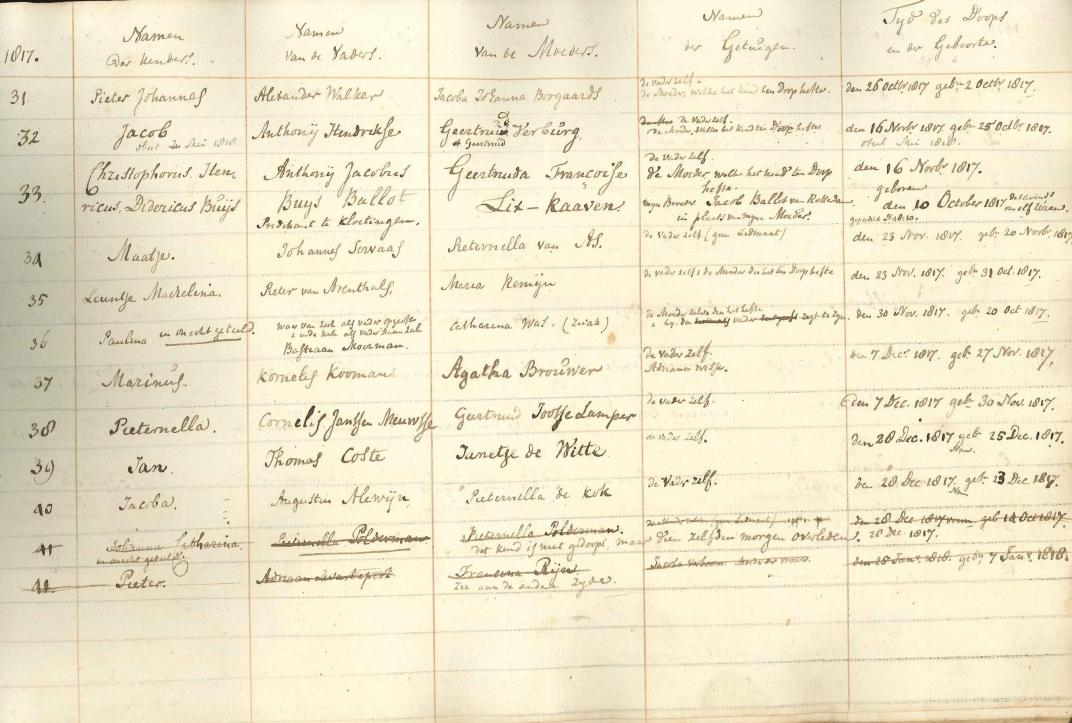 1817.
Namen der Kinders.
Namen van de Vaders.
Namen van de Moeders.
Namen der Getuigen.
Tyd des Doops en der Geboorte.
31 Pieter Johannes Alexander Walker Jacoba Johanna Boogaards
de vader zelf.
de Moeder, welke het kind ten Doop hefte. den 26 Octbr 1817 gebr 2 Octbr 1817.
32 Jacob Anthonij Hendrikse Geertruid Verburg.
de Vader zelf.
de Moeder, welke het kind ten Doop hefte den 16 Novbr 1817 gebr 25 Octbr 1817.
obiit Mei 1818. Geertruid obiit Mei 1818.
33 Christophorus Hen-
ricus Didericus Buijs
Anthonij Jacobus
Buijs Ballot
Predikant te Kloetingen.
Geertruida Françoise
Lix-Raaven.
de Vader zelf.
de Moeder, welke het kind ten Doop
hefte.
mijn Broeder Jacob Ballot van Rotterdam
in plaats van myne Moeder.
den 16 Novbr 1817.
geboren
den 10 October 1817 des avonds
om elf uren.
34 Maatje. Johannes Servaas Pieternella van As. de Vader zelf (geen Ledmaat) den 23 Nov. 1817. gebr 20 Novbr 1817
35 Leuntje Mackelina. Pieter van Arenthals. Maria Remijn de Vader zelf & de Moeder die het ten Doop hefte den 23 Nov. 1817. gebr 31 Oct. 1817.
36 Paulina in onecht geteeld.
Bastiaan Moerman.
Catharina Was. (Zwak)
de Moeder zelve die het hefte
den 30 Nov. 1817 gebr 20 Oct 1817.
37 Marinus. Kornelis Kooman Agatha Brouwer
de Vader zelf.
Adriana Wisse. den 7 Decr 1817. gebr 27 Nov. 1817.
38 Pieternella. Cornelis Janssen Meeuwsse Geertruid Joosse Lamper de vader zelf. den 7 Dec. 1817 gebr 30 Nov. 1817.
39 Jan. Thomas Coste Junetje de Witte de vader zelf. den 28 Dec. 1817 gebr 25 Dec. 1817.
40 Jacoba. Augustus Alewijn Pieternella de Kok de Vader zelf. den 28 Dec 1817. gebr 23 Dec 1817.
41 Johanna Catharina. Pieternella Polderman Pieternella Polderman. den 28 Dec 1817 gebr 14 Oct 1817.
in onecht geteeld dit kind is niet gedoopt, maar den zelfden morgen overleden. 28 Dec. 1817.
41. Pieter. Adriaan Zwartepoort Francina Rijn den 25 Janr 1818. gebr 7 Janr 1818.
Zie aan de andere zyde.